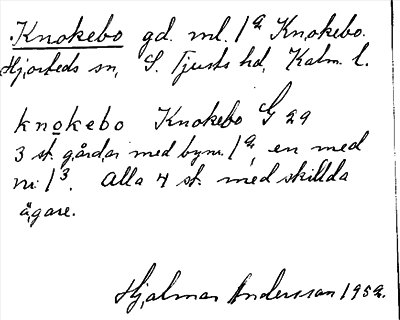 Knokebo gd. ml. 1ª Knokebo.
Hjorteds sn, S. Tjusts hd, Kalm. l.
knokebo Knokebo G 29
3 st. gårdar med bynr. 1ª, en med
nr. 1³. Alla 4 st. med skillda
ägare.
Hjalmar Andersson 1952.